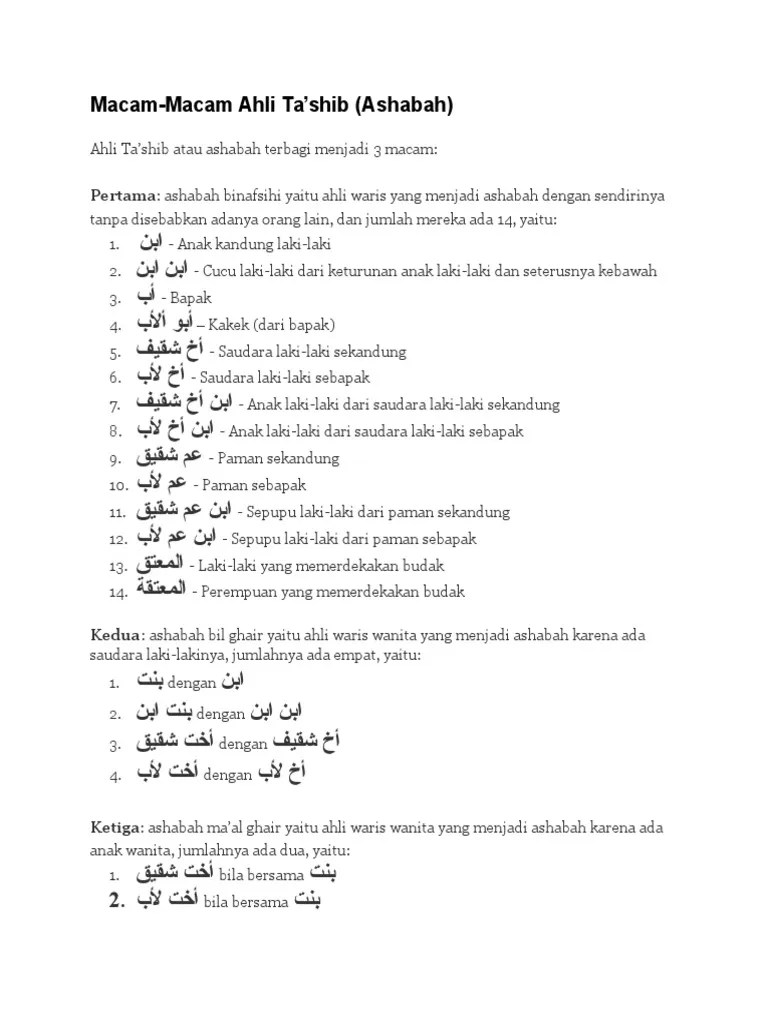 Macam-Macam Ahli Ta’shib (Ashabah)
Ahli Ta’shib atau ashabah terbagi menjadi 3 macam:
Pertama: ashabah binafsihi yaitu ahli waris yang menjadi ashabah dengan sendirinya
tanpa disebabkan adanya orang lain, dan jumlah mereka ada 14, yaitu:
1. ابن - Anak kandung laki-laki
2. ابن ابن - Cucu laki-laki dari keturunan anak laki-laki dan seterusnya kebawah
3. أب - Bapak
4. أبو ألأب – Kakek (dari bapak)
5. أخ شقيف - Saudara laki-laki sekandung
6. أخ لأب - Saudara laki-laki sebapak
7. ابن أخ شقيف - Anak laki-laki dari saudara laki-laki sekandung
8. ابن أخ لأب - Anak laki-laki dari saudara laki-laki sebapak
9. عم شقيق - Paman sekandung
10. عم لأب - Paman sebapak
11. ابن عم شقيق - Sepupu laki-laki dari paman sekandung
12. ابن عم لأب - Sepupu laki-laki dari paman sebapak
13. المعتق - Laki-laki yang memerdekakan budak
14. المعتقة - Perempuan yang memerdekakan budak
Kedua: ashabah bil ghair yaitu ahli waris wanita yang menjadi ashabah karena ada
saudara laki-lakinya, jumlahnya ada empat, yaitu:
1. بنت dengan ابن
2. بنت ابن dengan ابن ابن
3. أخت شقيق dengan أخ شقيف
4. أخت لأب dengan أخ لأب
Ketiga: ashabah ma’al ghair yaitu ahli waris wanita yang menjadi ashabah karena ada
anak wanita, jumlahnya ada dua, yaitu:
1. أخت شقيق bila bersama بنت
2. أخت لأب bila bersama بنت